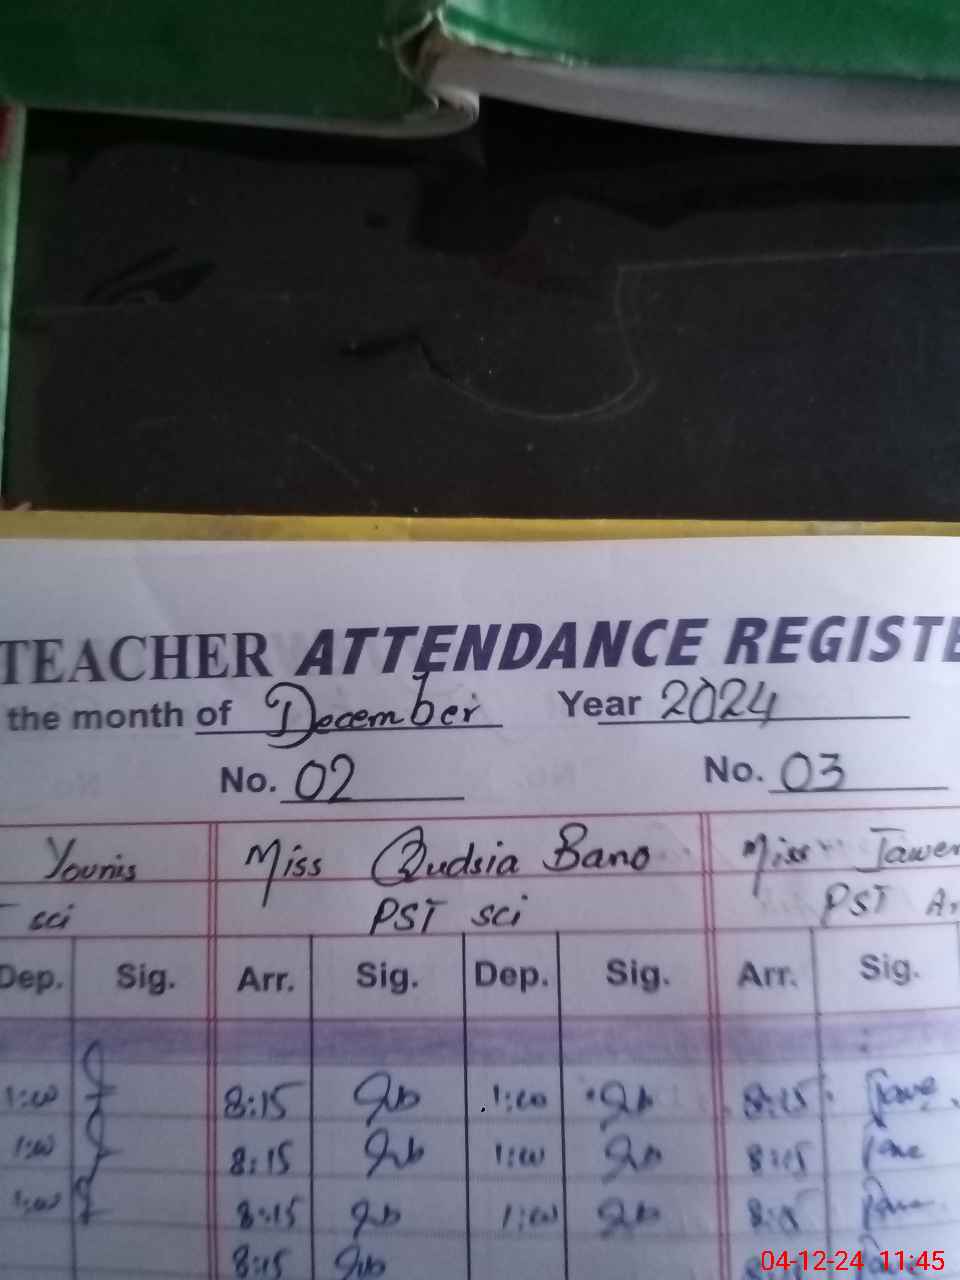 TEACHER ATTENDANCE REGISTE
the month of December Year 2024
No. 02 No. 03
Younis Miss Qudsia Bano Miss Jawer
sci PST sci PST Ar
Dep. Sig. Arr. Sig. Dep. Sig. Arr. Sig.
1:00 8:15 Qb 1:00 Qb 8:15 Jawe
1:00 8:15 Qb 1:00 Qb 8:15 Jawe
1:00 8:15 Qb 1:00 Qb 8:15
8:15 Qb
04-12-24 11:45